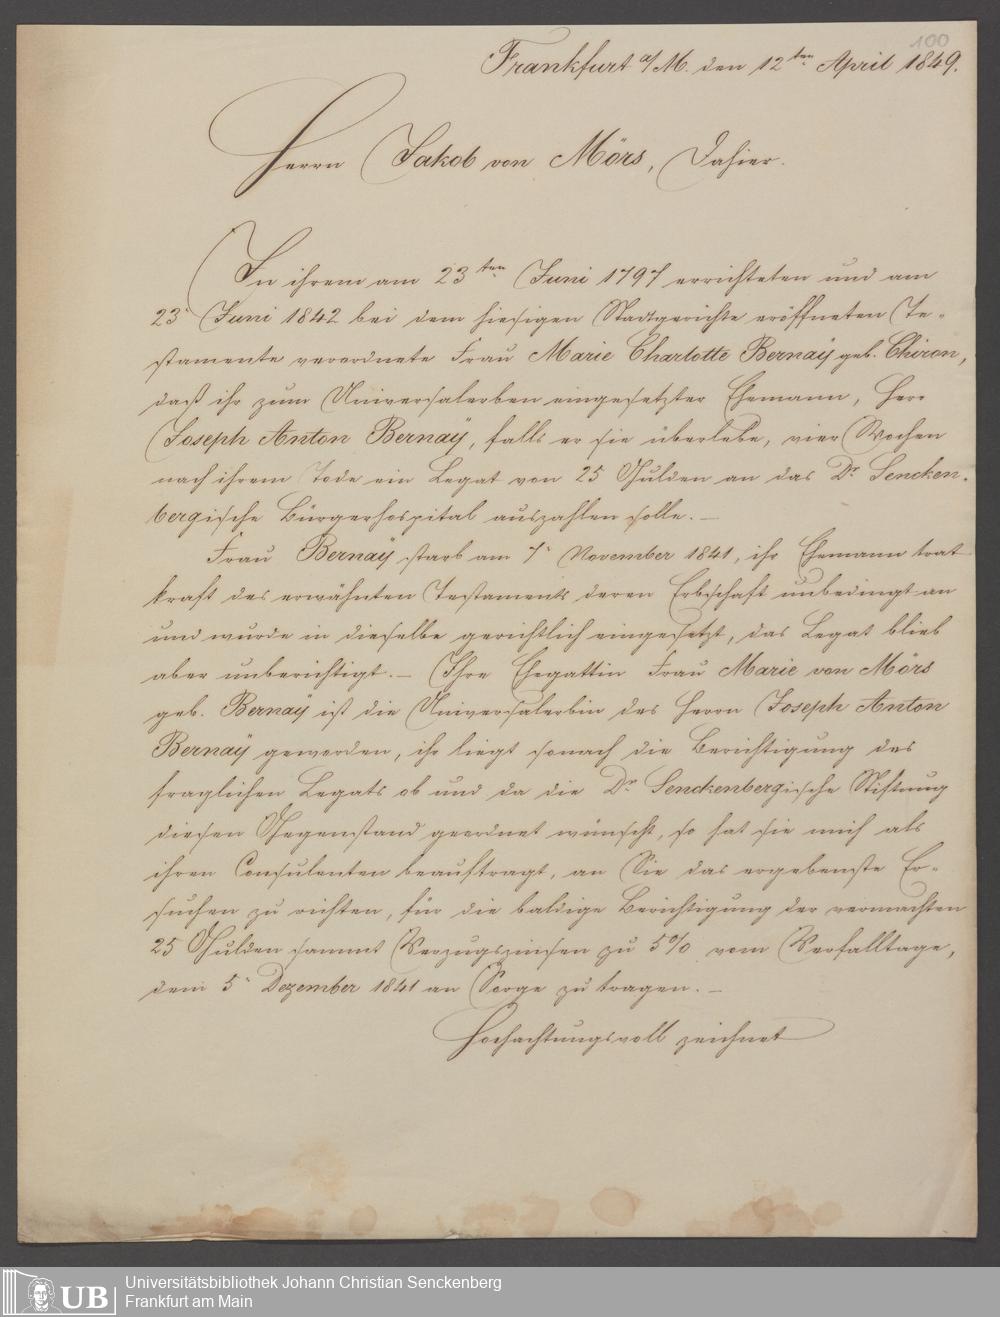 100
Frankfurt a/M. den 12ten April 1849.
Herrn Jakob von Mörs, Dahier.
In ihrem am 23ten Juni 1797 errichteten und am
23 Juni 1842 bei dem hiesigen Stadtgerichte eröffneten Te-
stamente verordnete Frau Marie Charlotte Bernaÿ geb. Chiron,
daß ihr zum Universalerben eingesetzter Ehemann, Herr
Joseph Anton Bernaÿ, falls er sie überlebe, vier Wochen
nach ihrem Tode ein Legat von 25 Gulden an das Dr. Sencken-
bergische Bürgerhospital auszahlen solle. —
Frau Bernaÿ starb am 7. November 1841, ihr Ehemann trat
kraft des erwähnten Testaments deren Erbschaft unbedingt an
und wurde in dieselbe gerichtlich eingesetzt, das Legat blieb
aber unberichtigt. — Ihre Ehegattin Frau Marie von Mörs
geb. Bernaÿ ist die Universalerbin des Herrn Joseph Anton
Bernaÿ geworden, ihr liegt sonach die Berichtigung des
fraglichen Legats ob und da die Dr. Senckenbergische Stiftung
diesen Gegenstand geordnet wünscht, so hat sie mich als
ihren Consulenten beauftragt, an Sie das ergebenste Er-
suchen zu richten, für die baldige Berichtigung der vermachten
25 Gulden sammt Verzugszinsen zu 5% vom Verfalltage,
dem 5. Dezember 1841 an Sorge zu tragen. —
Hochachtungsvoll zeichnet
UB
Universitätsbibliothek Johann Christian Senckenberg
Frankfurt am Main